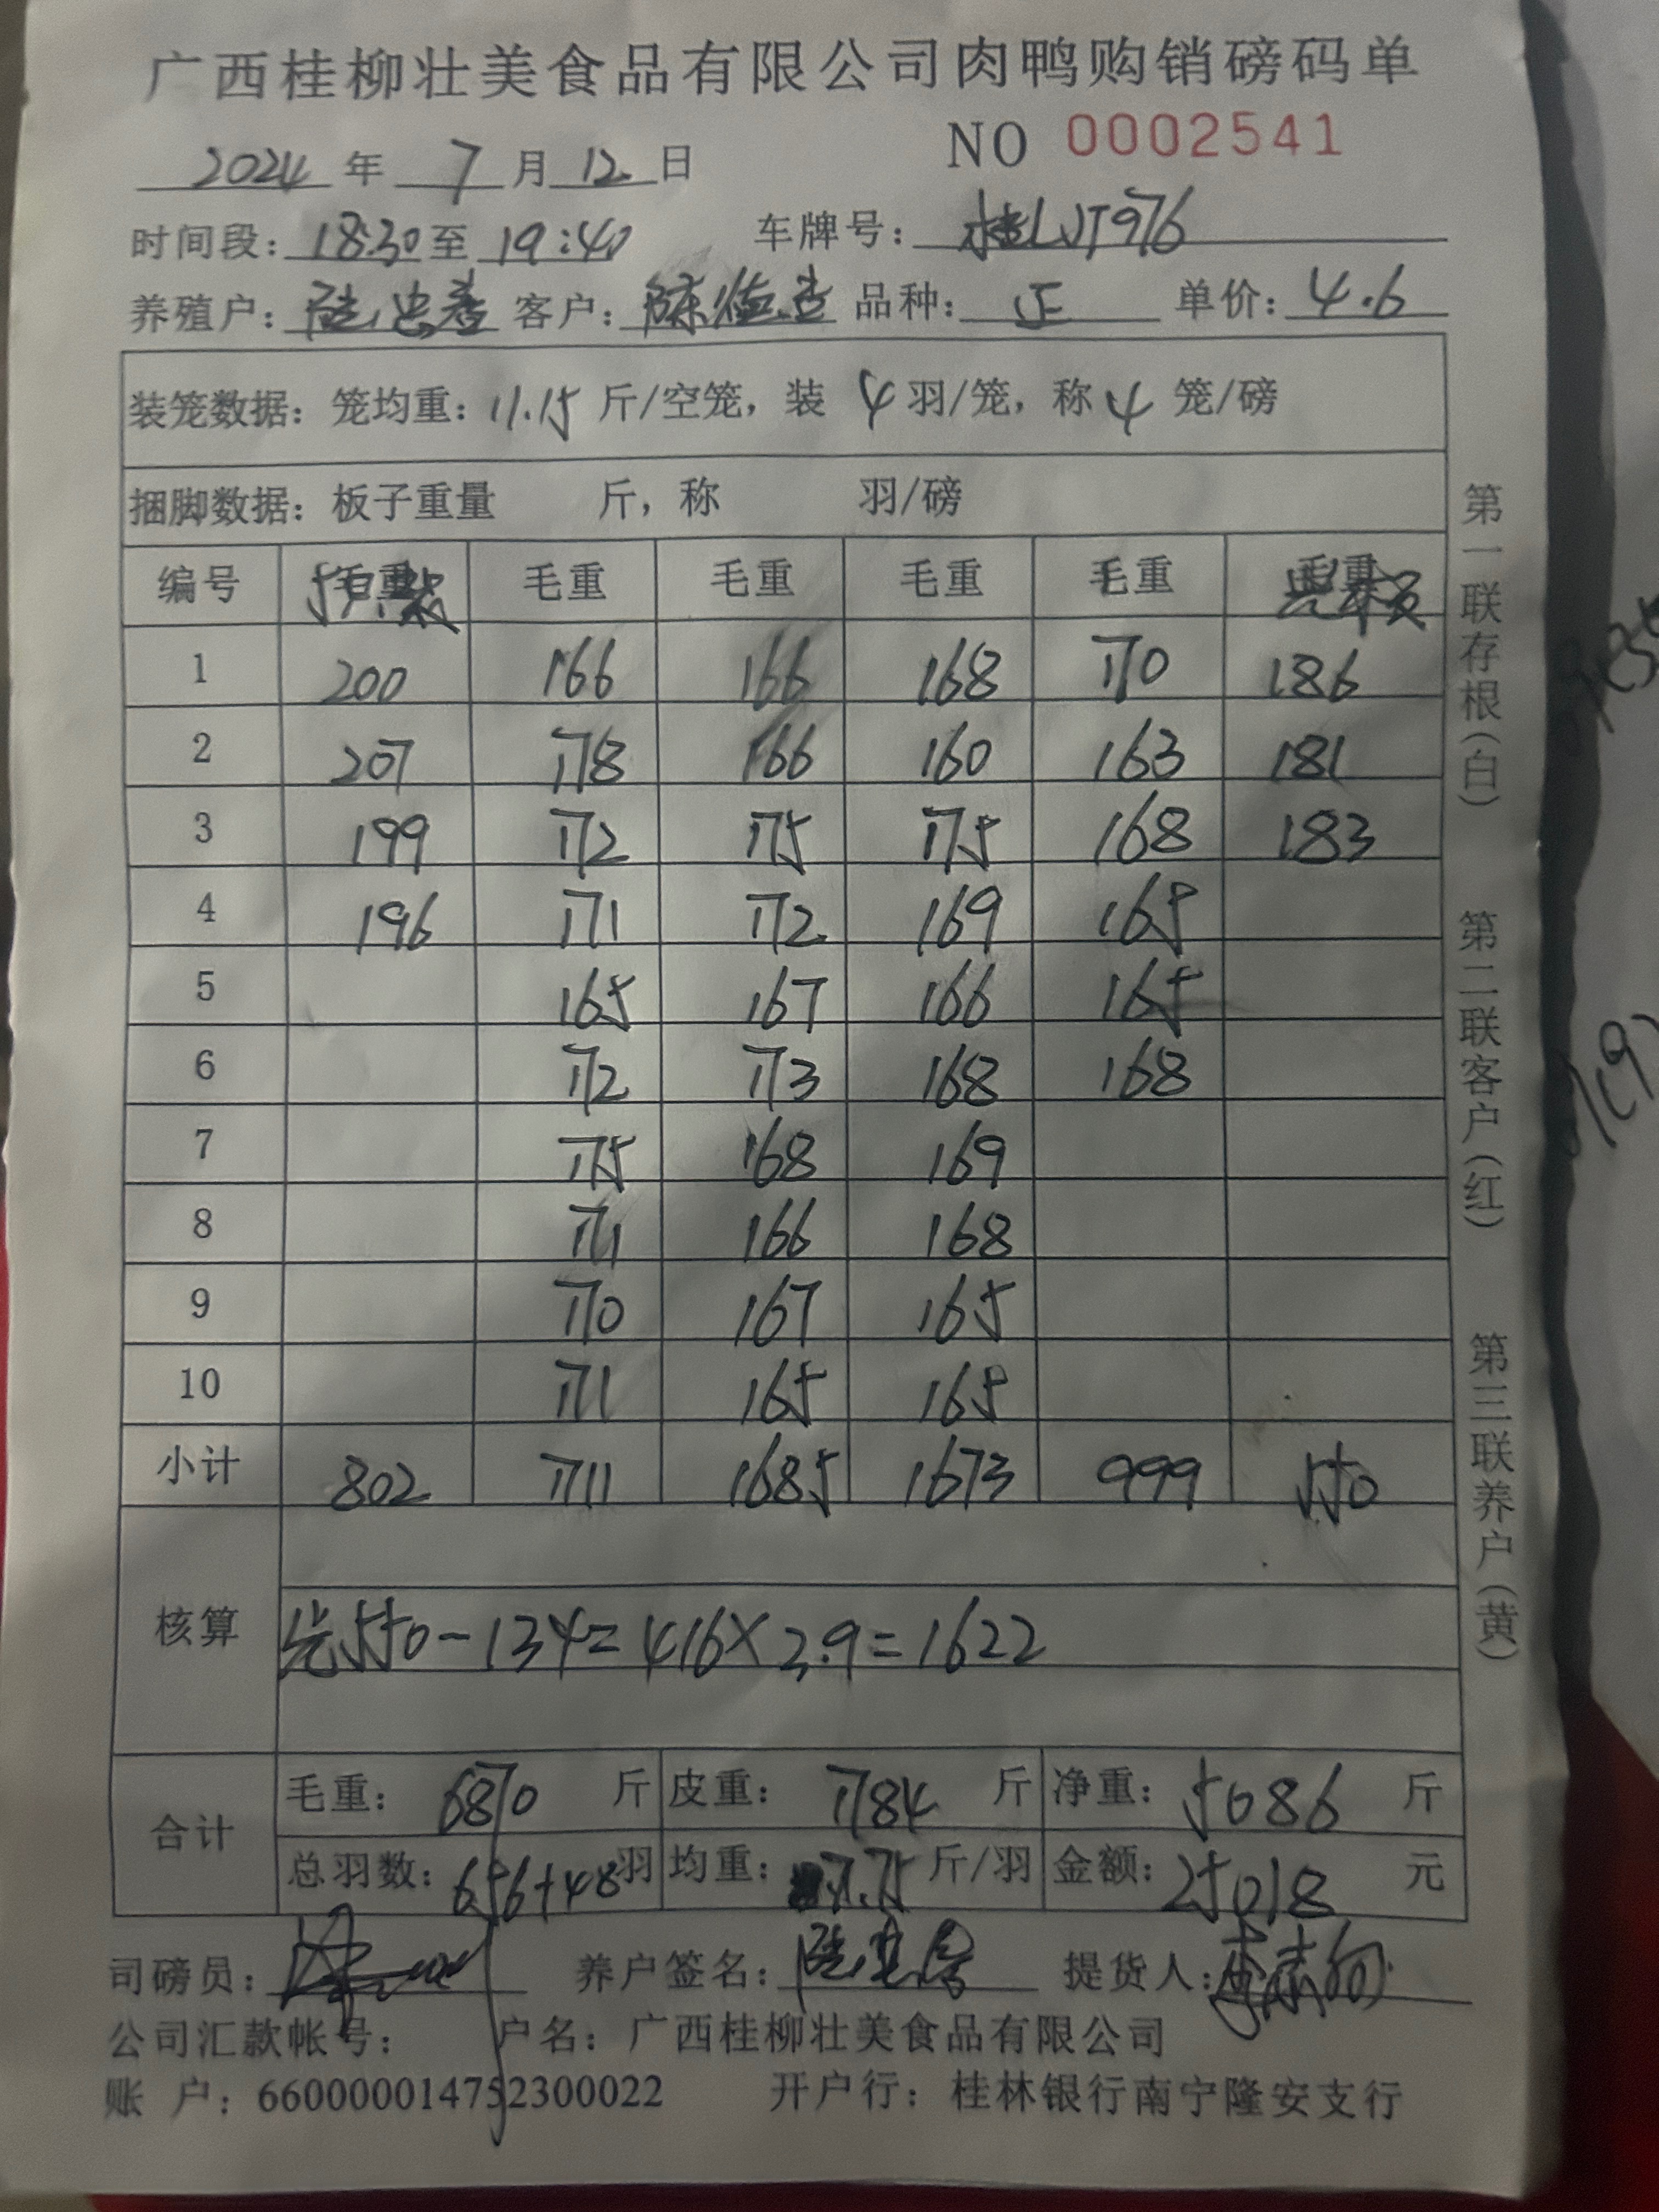 广西桂柳壮美食品有限公司肉鸭购销磅码单
NO 0002541
2024 年 7 月 12 日
时间段: 18:30 至 19:40 车牌号: 桂LJT976
养殖户: 客户: 陈 品种: 正 单价: 4.6
装笼数据: 笼均重: 11.15 斤/空笼, 装 4 羽/笼, 称 4 笼/磅
捆脚数据: 板子重量 斤, 称 羽/磅
编号 毛重 毛重 毛重 毛重 毛重 毛重
1 200 166 166 168 170 186
2 207 178 166 160 163 181
3 199 172 175 175 168 183
4 196 171 172 169 165
5 165 167 166 165
6 172 173 168 168
7 175 168 169
8 171 166 168
9 170 167 165
10 171 165 165
小计 802 1711 1685 1673 999 550
核算
550-134=416×3.9=1622
合计
毛重: 6870 斤 皮重: 1784 斤 净重: 5086 斤
总羽数: 656+48 羽 均重: 7.75 斤/羽 金额: 25018 元
司磅员: 养户签名: 提货人:
公司汇款帐号: 户名: 广西桂柳壮美食品有限公司
账 户: 660000014752300022 开户行: 桂林银行南宁隆安支行
第一联存根(白)
第二联客户(红)
第三联养户(黄)